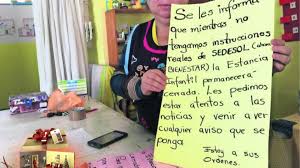 Se les informa
que mientras no
tengamos instrucciones
reales de SEDESOL (ahora
BIENESTAR) la Estancia
Infantil permanecerá
cerrada. Les pedimos
estar atentos a las
noticias y venir a ver
cualquier aviso que se
ponga
Estoy a sus
Ordenes.